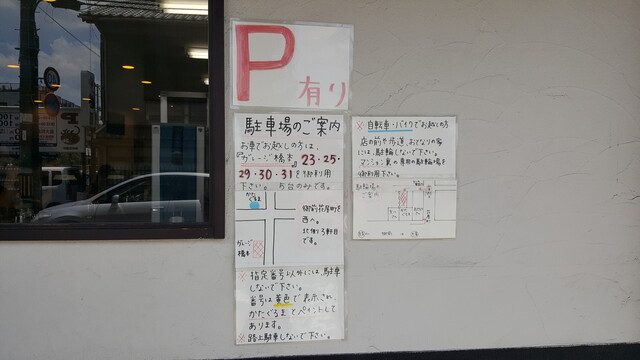 P
有り
駐車場のご案内
お車でお越しの方は、
『ガレージ橋本』23・25・
29・30・31をご利用
下さい。 5台のみです。
かたぐるま
西へ。
北側3軒目
です。
ガレージ
橋本
※指定番号以外には、駐車
しないで下さい。
番号は黄色で表示され、
かたぐるまとペイントして
あります。
※路上駐車しないで下さい。
※自転車・バイクでお越しの方
店の前や歩道、おとなりの家
には、駐輪しないで下さい。
マンション裏の専用の駐輪場を
御利用下さい。
駐輪場の
ご案内